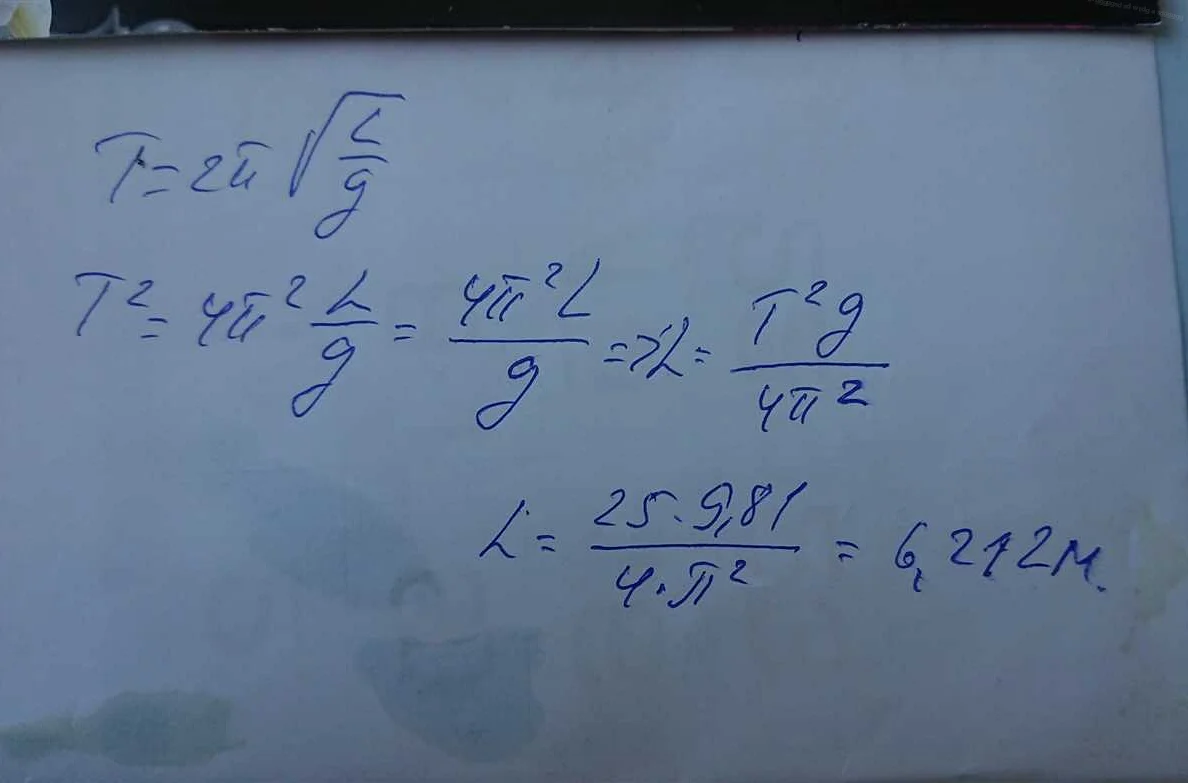 T = 2π √(L/g)
T² = 4π² L/g = 4π²L/g => L = T²g/4π²
L = 25·9,81/4·π² = 6,212м.